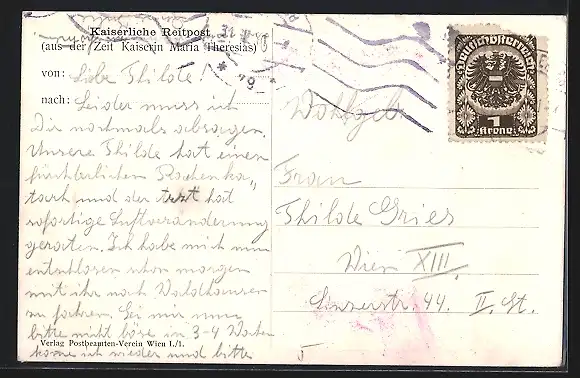 Kaiserliche Reitpost
(aus der Zeit Kaiserin Maria Theresias)
von: Liebe Thilde!
nach: Leider muss ich
Dir nochmals absagen.
Unsere Thilde hat einen
fürchterlichen Rachenka„
tarrh und der Arzt hat
sofortige Luftveränderung
geraten. Ich habe mich nun
entschlossen schon morgen
mit ihr nach Waldhausen
zu fahren. Sei mir nun
bitte nicht böse in 3-4 Wochen
komme ich wieder und bitte
Verlag Postbeamten-Verein Wien I./1.
Deutschösterreich
1
Krone
Wohlgeb
Frau
Thilde Gries
Wien XIII.
Linzerstr. 44. II. St.